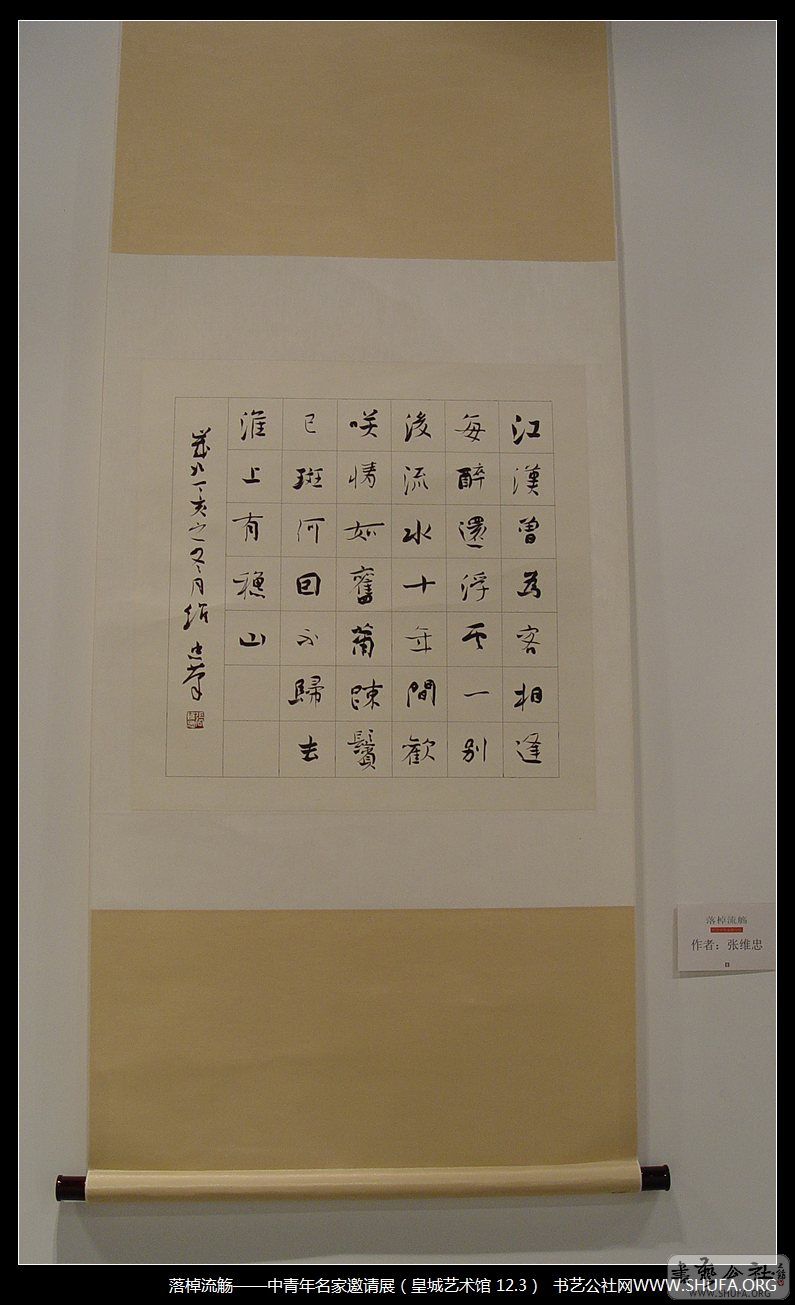 江漢曾為客相逢
每醉還浮云一别
後流水十年間歡
咲情如舊蕭踈鬢
已斑何囙不歸去
淮上有穐山
歲次丁亥之冬月維忠筆
落棹流觞
作者：张维忠
落棹流觞——中青年名家邀请展（皇城艺术馆 12.3） 书艺公社网WWW.SHUFA.ORG
書藝公社
WWW.SHUFA.ORG